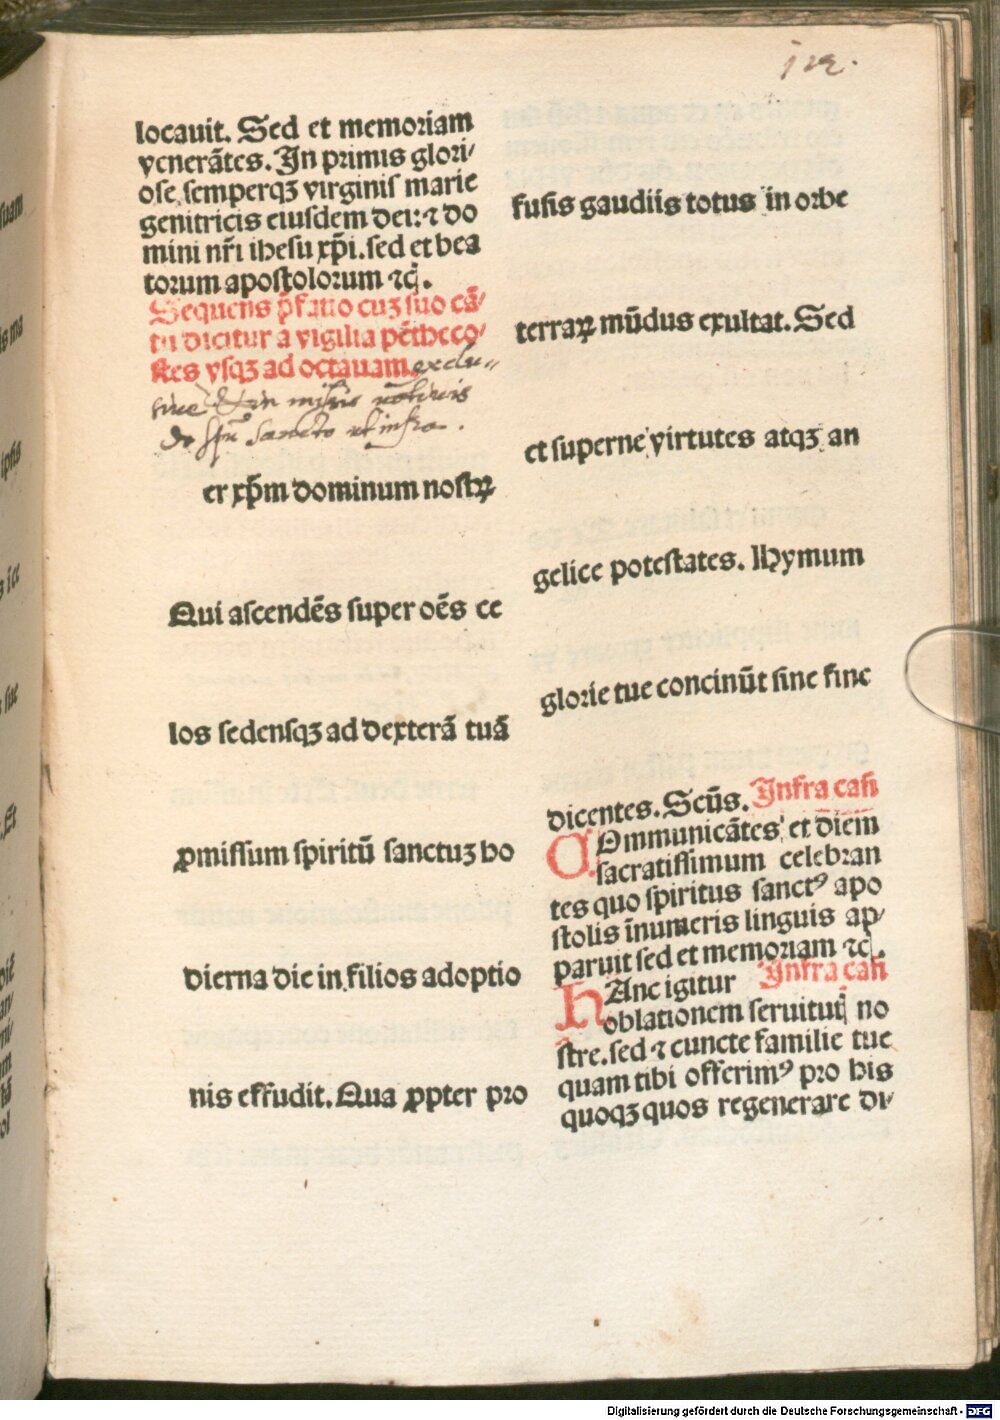 122.
locauit. Sed et memoriam
venerātes. In primis glori⸗
ose semperqꝫ virginis marie
genitricis eiusdem dei: ⁊ do
mini nr̄i ihesu xp̄i. sed et bea
torum apostolorum ⁊cꝭ.
Sequens p̄fatio cuꝫ suo cā⸗
tu dicitur a vigilia pētheco⸗
stes vsqꝫ ad octauam. exclu⸗
siue
de sp̄u sancto vt infra.
er xp̄m dominum nostrꝝ
Qui ascendēs super oēs ce
los sedensqꝫ ad dexterā tuā
ꝓmissum spiritū sanctuꝫ ho
dierna die in filios adoptio
nis effudit. Qua ꝓpter pro
fusis gaudiis totus in orbe
terraꝝ mūdus exultat. Sed
et superne virtutes atqꝫ an
gelice potestates. Hymum
glorie tue concinūt sine fine
dicentes. Scūs. Infra cañ
COmmunicātes et diem
sacratissimum celebran
tes quo spiritus sanctꝰ apo
stolis īnumeris linguis ap⸗
paruit sed et memoriam ⁊cꝭ.
HAnc igitur Infra cañ
oblationem seruitutꝭ no
stre. sed ⁊ cuncte familie tue
quam tibi offerimꝰ pro his
quoqꝫ quos regenerare di⸗
Digitalisierung gefördert durch die Deutsche Forschungsgemeinschaft - DFG